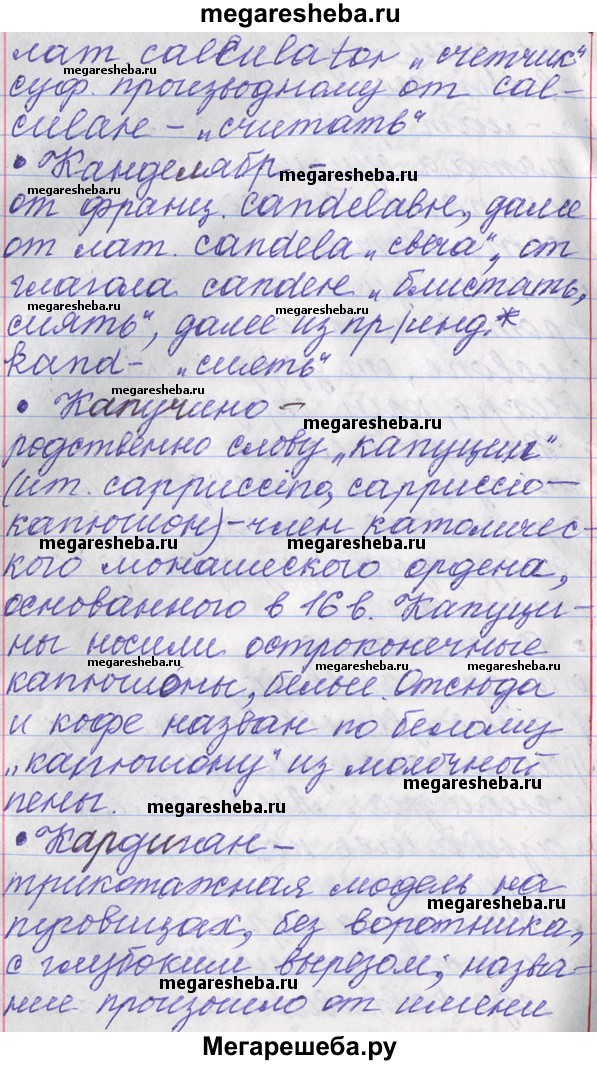 megaresheba.ru
лат. calculator „счетчик“
megaresheba.ru megaresheba.ru
суф. производному от cal-
culare - „считать“
• Канделябр -
megaresheba.ru megaresheba.ru
от франц. candelabre, далее
от лат. candela „свеча“, от
глагола candere „блистать,
megaresheba.ru megaresheba.ru
сиять“, далее из пр/инд.*
kand- „сиять“
megaresheba.ru
• Капучино -
megaresheba.ru
родственно слову „капуцин“
(ит. cappuccino, cappuccio -
капюшон) - член католичес-
megaresheba.ru megaresheba.ru
кого монашеского ордена,
основанного в 16 в. Капуци-
ны носили остроконечные
megaresheba.ru megaresheba.ru megaresheba.ru
капюшоны, белые. Отсюда
и кофе назван по белому
„капюшону“ из молочной
пены.
megaresheba.ru
• Кардиган -
трикотажная модель на
megaresheba.ru
пуговицах, без воротника,
с глубоким вырезом; назва-
megaresheba.ru
ние произошло от имени
Мегарешеба.ру